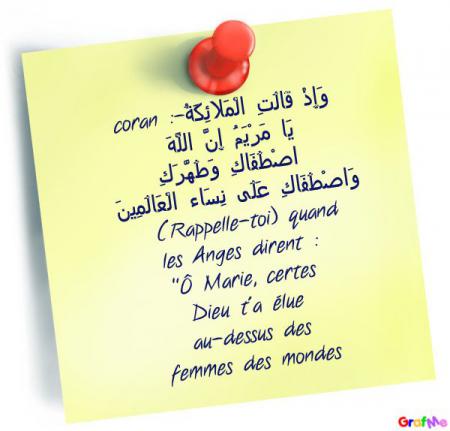 coran :-وَإِذْ قَالَتِ الْمَلَائِكَةُ
يَا مَرْيَمُ إِنَّ اللَّهَ
اصْطَفَاكِ وَطَهَّرَكِ
وَاصْطَفَاكِ عَلَى نِسَاء الْعَالَمِينَ
(Rappelle-toi) quand
les Anges dirent :
"Ô Marie, certes
Dieu t'a élue
au-dessus des
femmes des mondes
GrafMe